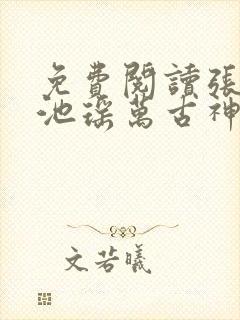 免費閱讀張
池瑤萬古神
文若曦